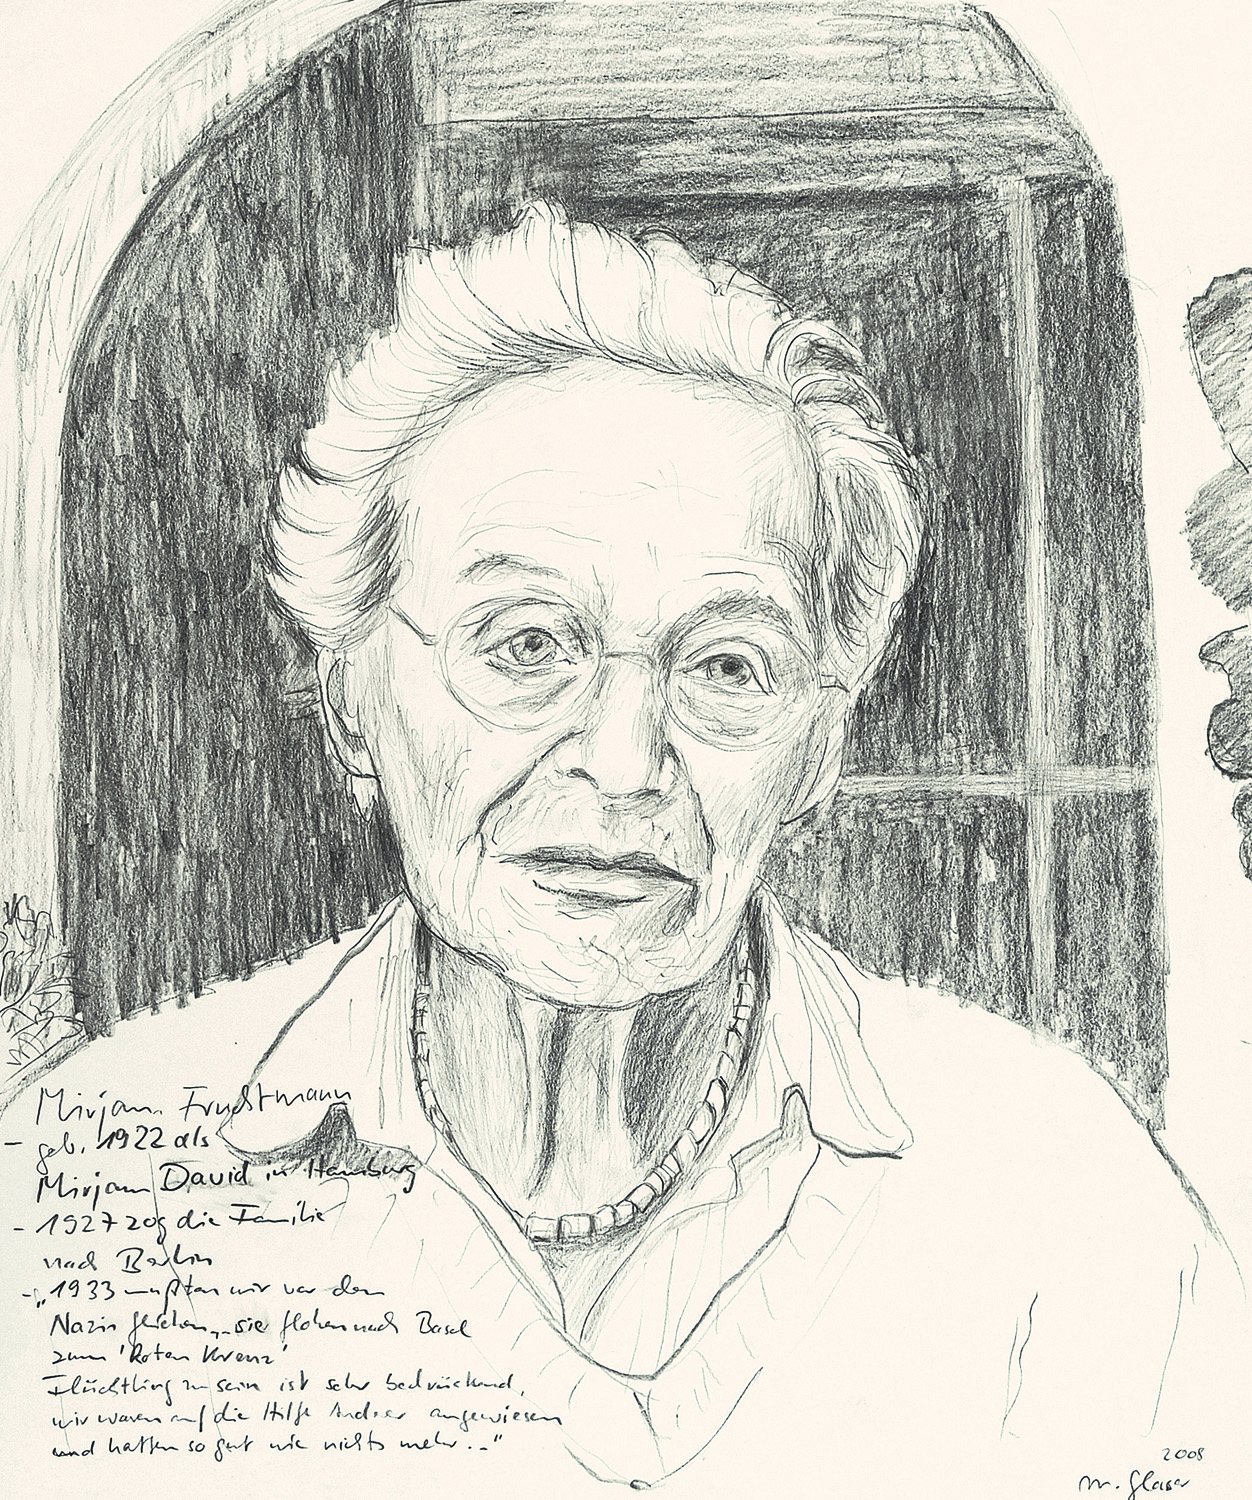 Mirjam Fruchtmann
- geb. 1922 als
Mirjam David in Hamburg
- 1927 zog die Familie
nach Berlin
- „1933 mußten wir vor den
Nazis fliehen, sie flohen nach Basel
zum 'Roten Kreuz'
Flüchtling zu sein ist sehr bedrückend,
wir waren auf die Hilfe Anderer angewiesen
und hatten so gut wie nichts mehr..."
2008
M. Glaser